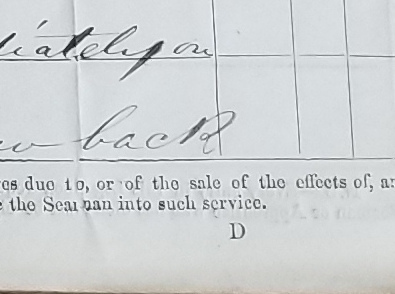 iately on
back
es due to, or of the sale of the effects of, a
the Seaman into such service.
D